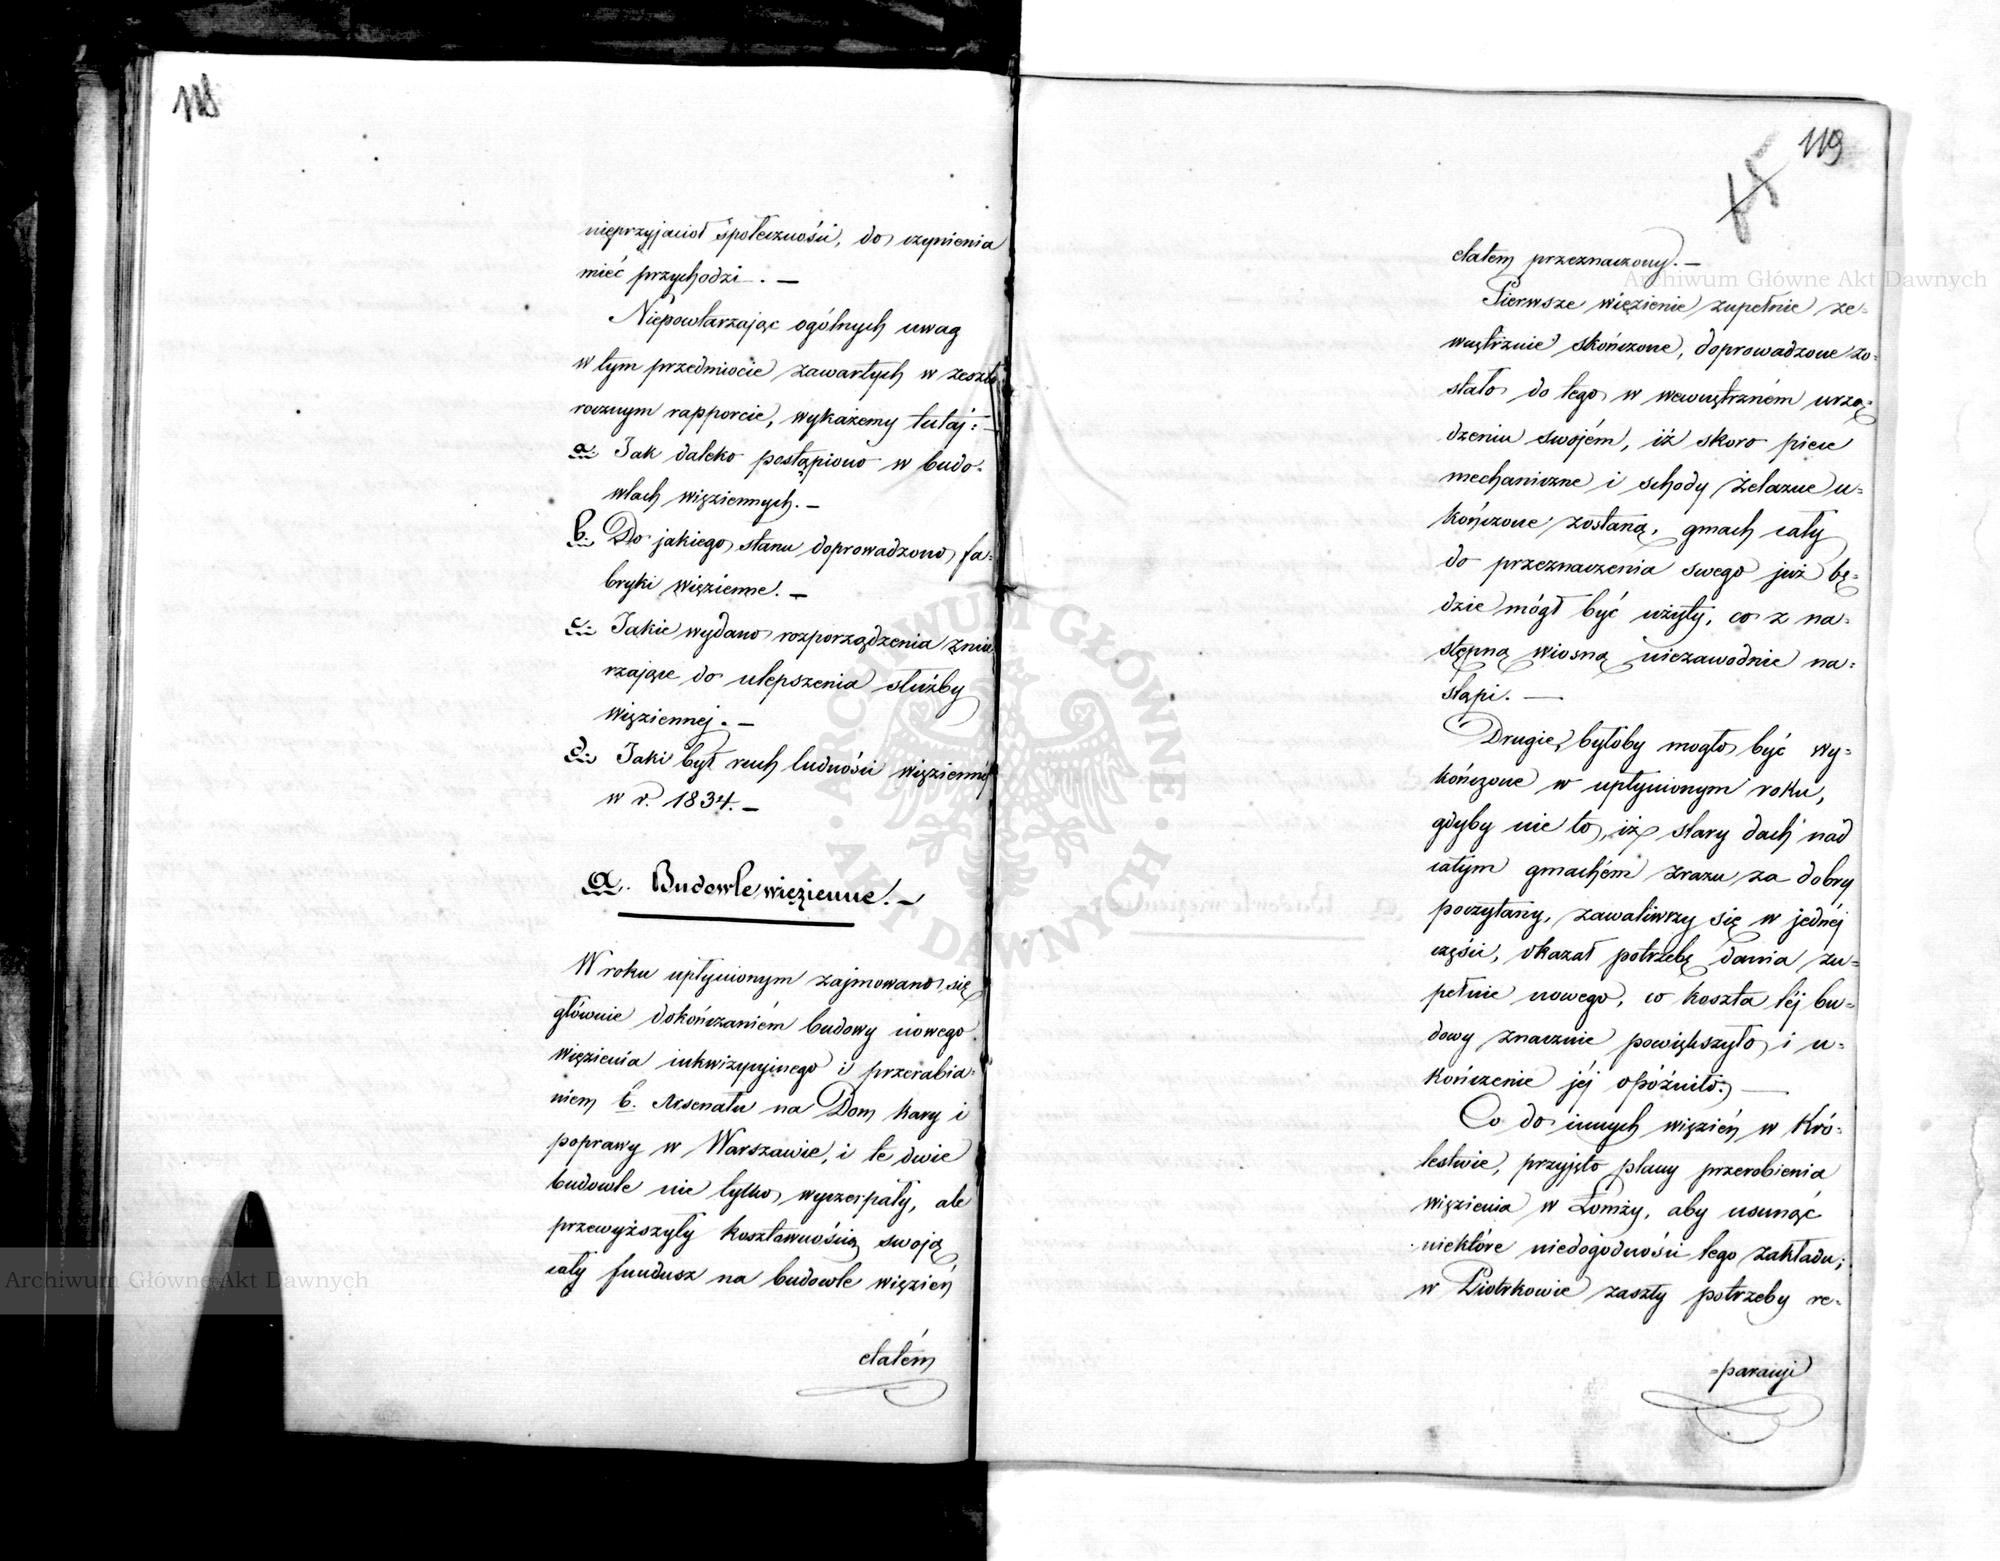 118
nieprzyjaciół społeczności, do czynienia
mieć przychodzi. —
Niepowtarzając ogólnych uwag
w tym przedmiocie zawartych w zeszło
rocznym rapporcie, wykażemy tutaj: —
a. Jak daleko postąpiono w budo-
wlach więziennych. —
b. Do jakiego stanu doprowadzono fa-
bryki więzienne. —
c. Jakie wydano rozporządzenia zmie
rzające do ulepszenia służby
więziennej. —
d. Jaki był ruch ludności więziennéj
w r. 1834. —
a. Budowle więzienne. —
W roku upłynionym zajmowano się
głównie dokończaniém budowy nowego
więzienia inkwizycyjnego i przerabia-
niem b. Arsenału na Dom kary i
poprawy w Warszawie, i te dwie
budowle nie tylko wyczerpały, ale
przewyższyły kosztownością swoją
cały fundusz na budowle więzień
etatém
119
etatem przeznaczony. —
Pierwsze więzienie zupełnie ze-
wnętrznie skończone, doprowadzone zo-
stało do tego w wewnętrzném urzą-
dzeniu swojém, iż skoro piece
mechaniczne i schody żelazne u-
kończone zostaną, gmach cały
do przeznaczenia swego już bę-
dzie mógł być użyty, co z na-
stępną wiosną niezawodnie na-
stąpi. —
Drugie, byłoby mogło być wy-
kończone w upłynionym roku,
gdyby nie to, iż stary dach nad
całym gmachém zrazu za dobry
poczytany, zawaliwszy się w jednéj
części, okazał potrzebę dania zu-
pełnie nowego, co koszta téj bu-
dowy znacznie powiększyło i u-
kończenie jéj opóźniło. —
Co do innych więzień w Kró-
lestwie, przyjęto plany przerobienia
więzienia w Łomży, aby usunąć
niektóre niedogodności tego zakładu;
w Piotrkowie zaszły potrzeby re-
-paracyi
Archiwum Główne Akt Dawnych
Archiwum Główne Akt Dawnych
ARCHIWUM GŁÓWNE
AKT DAWNYCH